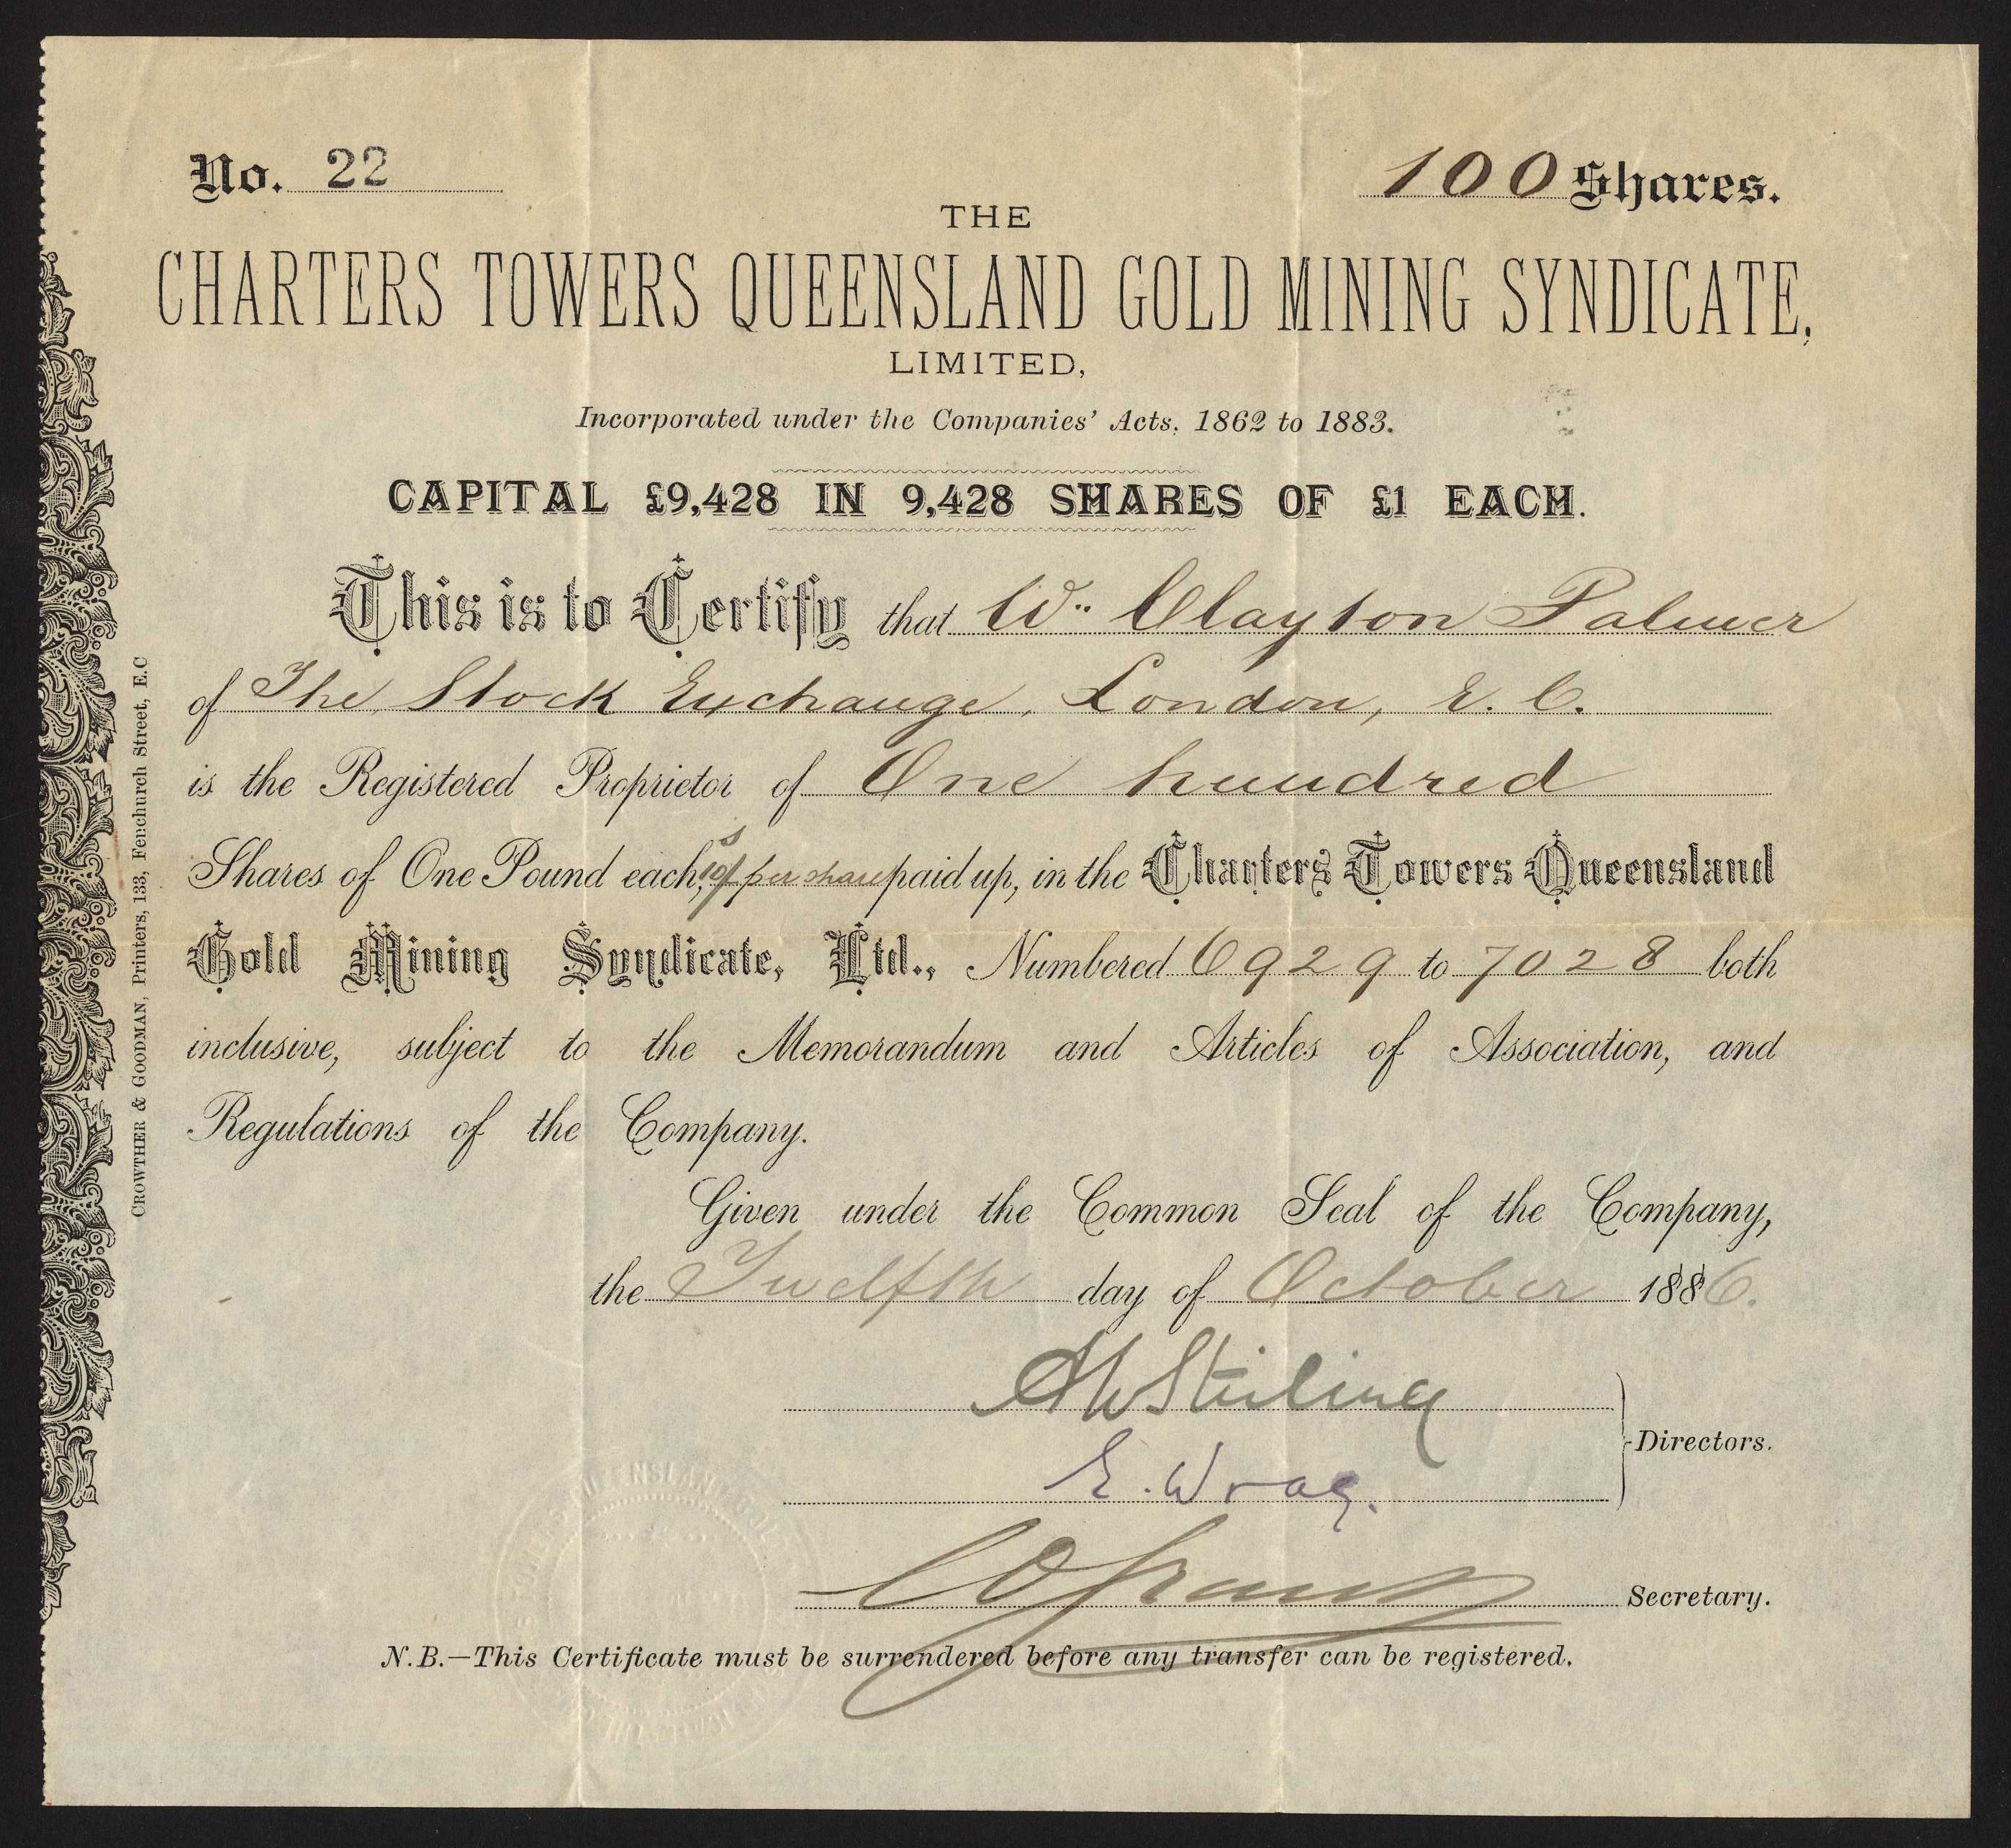 No. 22
100 Shares.
THE
CHARTERS TOWERS QUEENSLAND GOLD MINING SYNDICATE,
LIMITED,
Incorporated under the Companies' Acts. 1862 to 1883.
CAPITAL £9,428 IN 9,428 SHARES OF £1 EACH.
This is to Certify that Wm. Clayton Palmer
of The Stock Exchange, London, E. C.
is the Registered Proprietor of One hundred
Shares of One Pound each, 10/s per share paid up, in the Charters Towers Queensland
Gold Mining Syndicate, Ltd., Numbered 6929 to 7028 both
inclusive, subject to the Memorandum and Articles of Association, and
Regulations of the Company.
Given under the Common Seal of the Company,
the Twelfth day of October 1886.
AWStirling
E. Wrag.
Directors.
Secretary.
N.B.—This Certificate must be surrendered before any transfer can be registered.
CROWTHER & GOODMAN, Printers, 133, Fenchurch Street, E.C